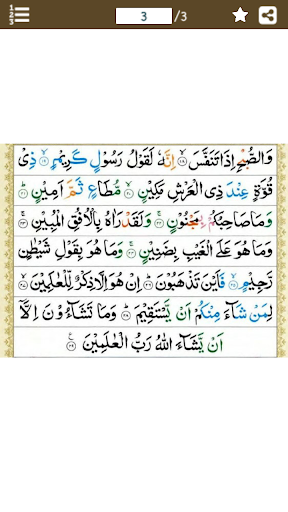 1
2
3
3 /3
وَالصُّبْحِ اِذَا تَنَفَّسَ ۙ﴿۱۸﴾ اِنَّهٗ لَقَوْلُ رَسُوْلٍ كَرِيْمٍ ۙ﴿۱۹﴾ ذِىْ
قُوَّةٍ عِنْدَ ذِى الْعَرْشِ مَكِيْنٍ ۙ﴿۲۰﴾ مُّطَاعٍ ثَمَّ اَمِيْنٍ ؕ﴿۲۱﴾
وَمَا صَاحِبُكُمْ بِمَجْنُوْنٍ ۚ﴿۲۲﴾ وَلَقَدْ رَاٰهُ بِالْاُفُقِ الْمُبِيْنِ ۚ﴿۲۳﴾
وَمَا هُوَ عَلَى الْغَيْبِ بِضَنِيْنٍ ۚ﴿۲۴﴾ وَمَا هُوَ بِقَوْلِ شَيْطٰنٍ
رَّجِيْمٍ ۙ﴿۲۵﴾ فَاَيْنَ تَذْهَبُوْنَ ؕ﴿۲۶﴾ اِنْ هُوَ اِلَّا ذِكْرٌ لِّلْعٰلَمِيْنَ ۙ﴿۲۷﴾
لِمَنْ شَآءَ مِنْكُمْ اَنْ يَّسْتَقِيْمَ ؕ﴿۲۸﴾ وَمَا تَشَآءُوْنَ اِلَّاۤ
اَنْ يَّشَآءَ اللّٰهُ رَبُّ الْعٰلَمِيْنَ ﴿۲۹﴾